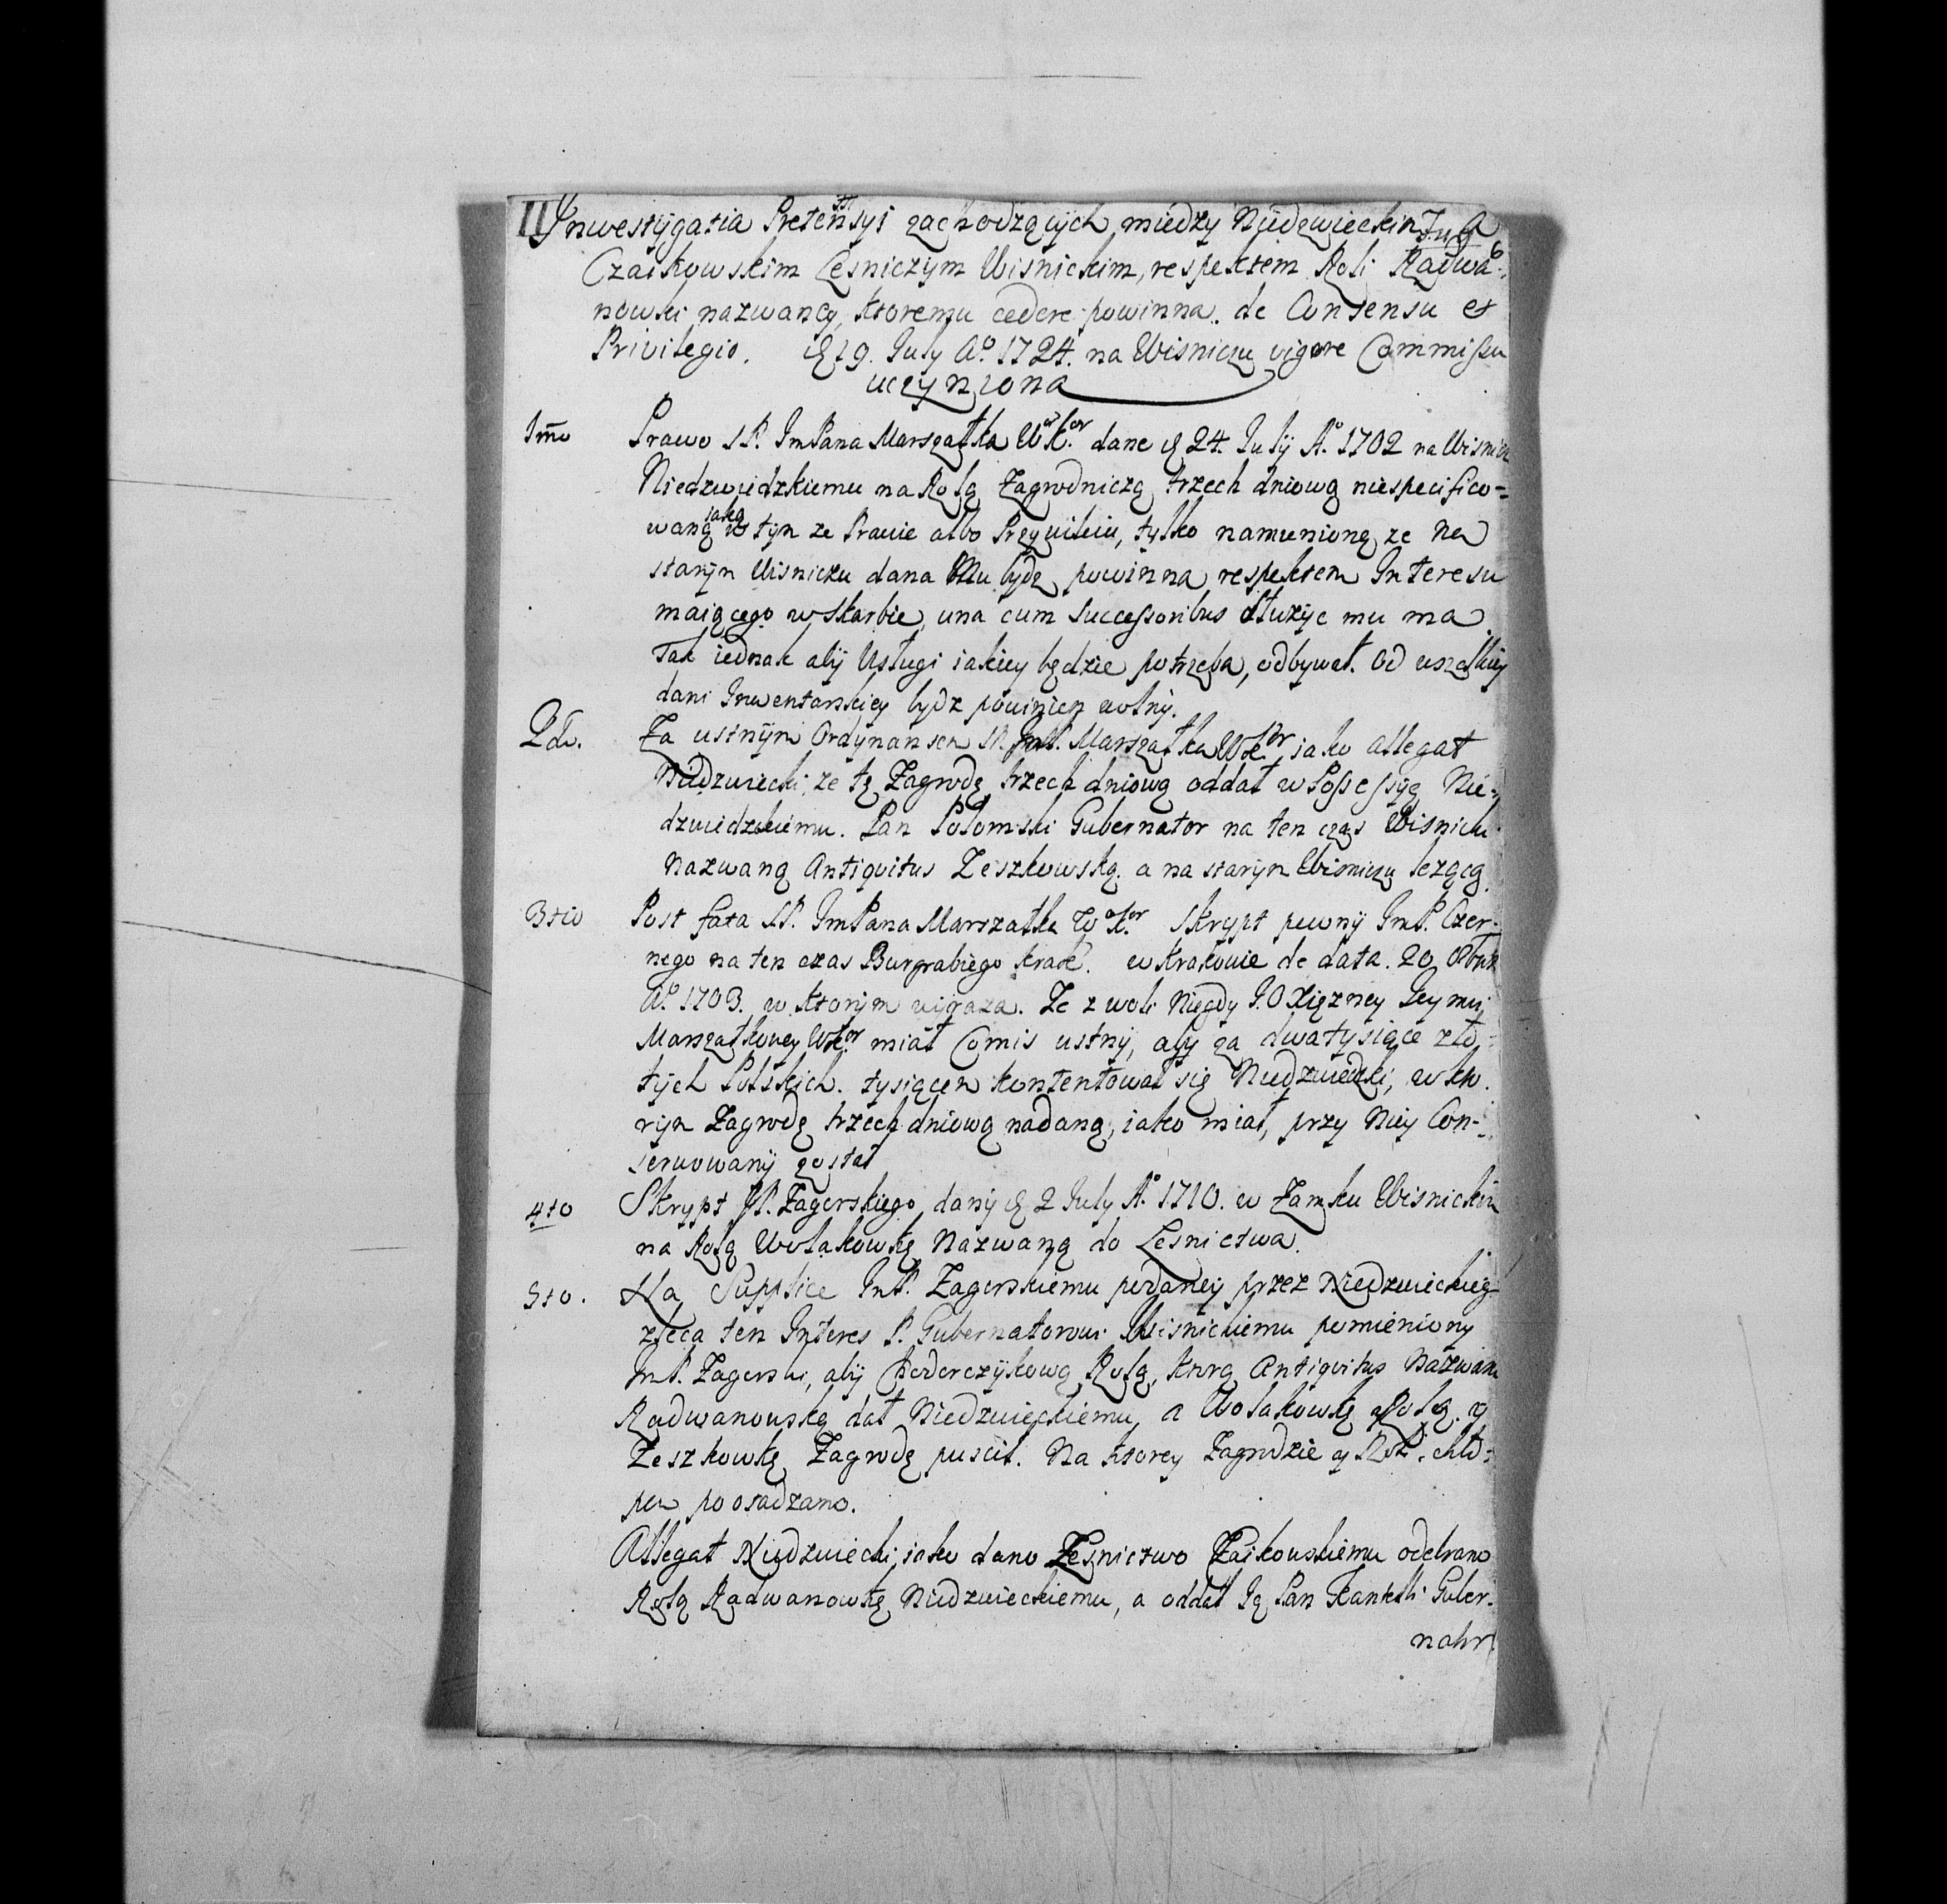 II Inwestygatia Pretensyi zachodzących między Niedzwieckim a
Czaikowskim Lesniczym Wisnickim, respektem Roli Radwa-
nowski nazwaney, ktoremu cedere powinna. de Consensu et
Privilegio. 19. July Aº. 1724. na Wisniczu vigore Commissu
uczyniona
1mo Prawo SP. ImPana Marszałka WKor. dane 24. Julÿ Aº. 1702 na Wisnicz
Niedzwiedzkiemu na Rolą Zagrodniczą trzech dniową niespecifico-
waną iaką w tÿm ze Prawie albo Przywileiu, tylko namienioną ze na
starÿm Wisniczu dana Mu bydz powinna respektem Interesu
maiącego w Skarbie, una cum Successoribus służyc mu ma.
Tak iednak abÿ Usługi iakiey będzie potrzeba, odbywał. Od wszelkiey
dani Inwentarskiey bydz powinien wolnÿ.
2do. Za ustnÿm Ordÿnansem SP. ImP. Marszałka WKor. iako allegat
Niedzwiecki, że tę Zagrodę trzech dniową oddał w Possessyę Nie-
dzwiedzkiemu. Pan Połomski Gubernator na ten czas Wisnicki
Nazwaną Antiquitus Zeszkowską. a na starÿm Wisniczu lezącą.
3tio Post fata SP. ImPana Marszałka WKor. Skrypt pewnÿ ImP. Czer-
nego na ten czas Burgrabiego Krak. w Krakowie de data. 20
Aº. 1703. w ktorÿm wÿraza. Ze z woli Niegdy J.O Xięzney Jeymci
Marszałkowey WKor. miał Comis ustnÿ, abÿ za dwa tysiące zło-
tÿch Polskich. tysiącem kontentował się Niedzwiedzki, w kto-
rÿm Zagrodę trzech dniową nadaną, iako miał, przy Niey Con-
serwowanÿ został
4to Skrypt JP. Zagorskiego danÿ 2 July Aº. 1710. w Zamku Wisnickim
na Rolą Wolakowkę Nazwaną do Lesnictwa.
5to. Na Supplice ImP. Zagorskiemu podaney przez Niedzwieckieg
zleca ten Interes P. Gubernatorowi Wisnickiemu pomieniony
ImP. Zagorski, abÿ Chederczÿkową Rolą, ktorą Antiquitus Nazwano
Radwanowską dał Niedzwieckiemu, a Wolakowkę Rolą. y
Zeszkowkę Zagrodę puscił. Na ktorey Zagrodzie y Roli. chło-
pow poosadzano.
Allegat Niedzwiecki, iako dano Lesnictwo Czaikowskiemu odebrano
Rolą Radwanowkę Niedzwieckiemu, a oddał Ią Pan Guber-
nator